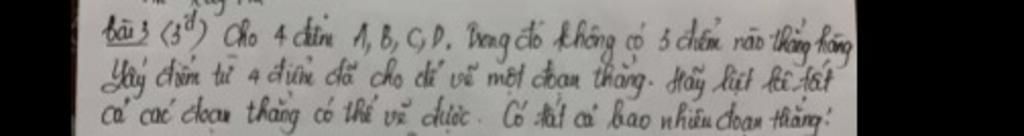 bài 3 (3đ) Cho 4 điểm A, B, C, D. Trong đó không có 3 điểm nào thẳng hàng
Lấy điểm từ 4 điểm đã cho để vẽ một đoạn thẳng. Hãy liệt kê tất
cả các đoạn thẳng có thể vẽ được. Có tất cả bao nhiêu đoạn thẳng?